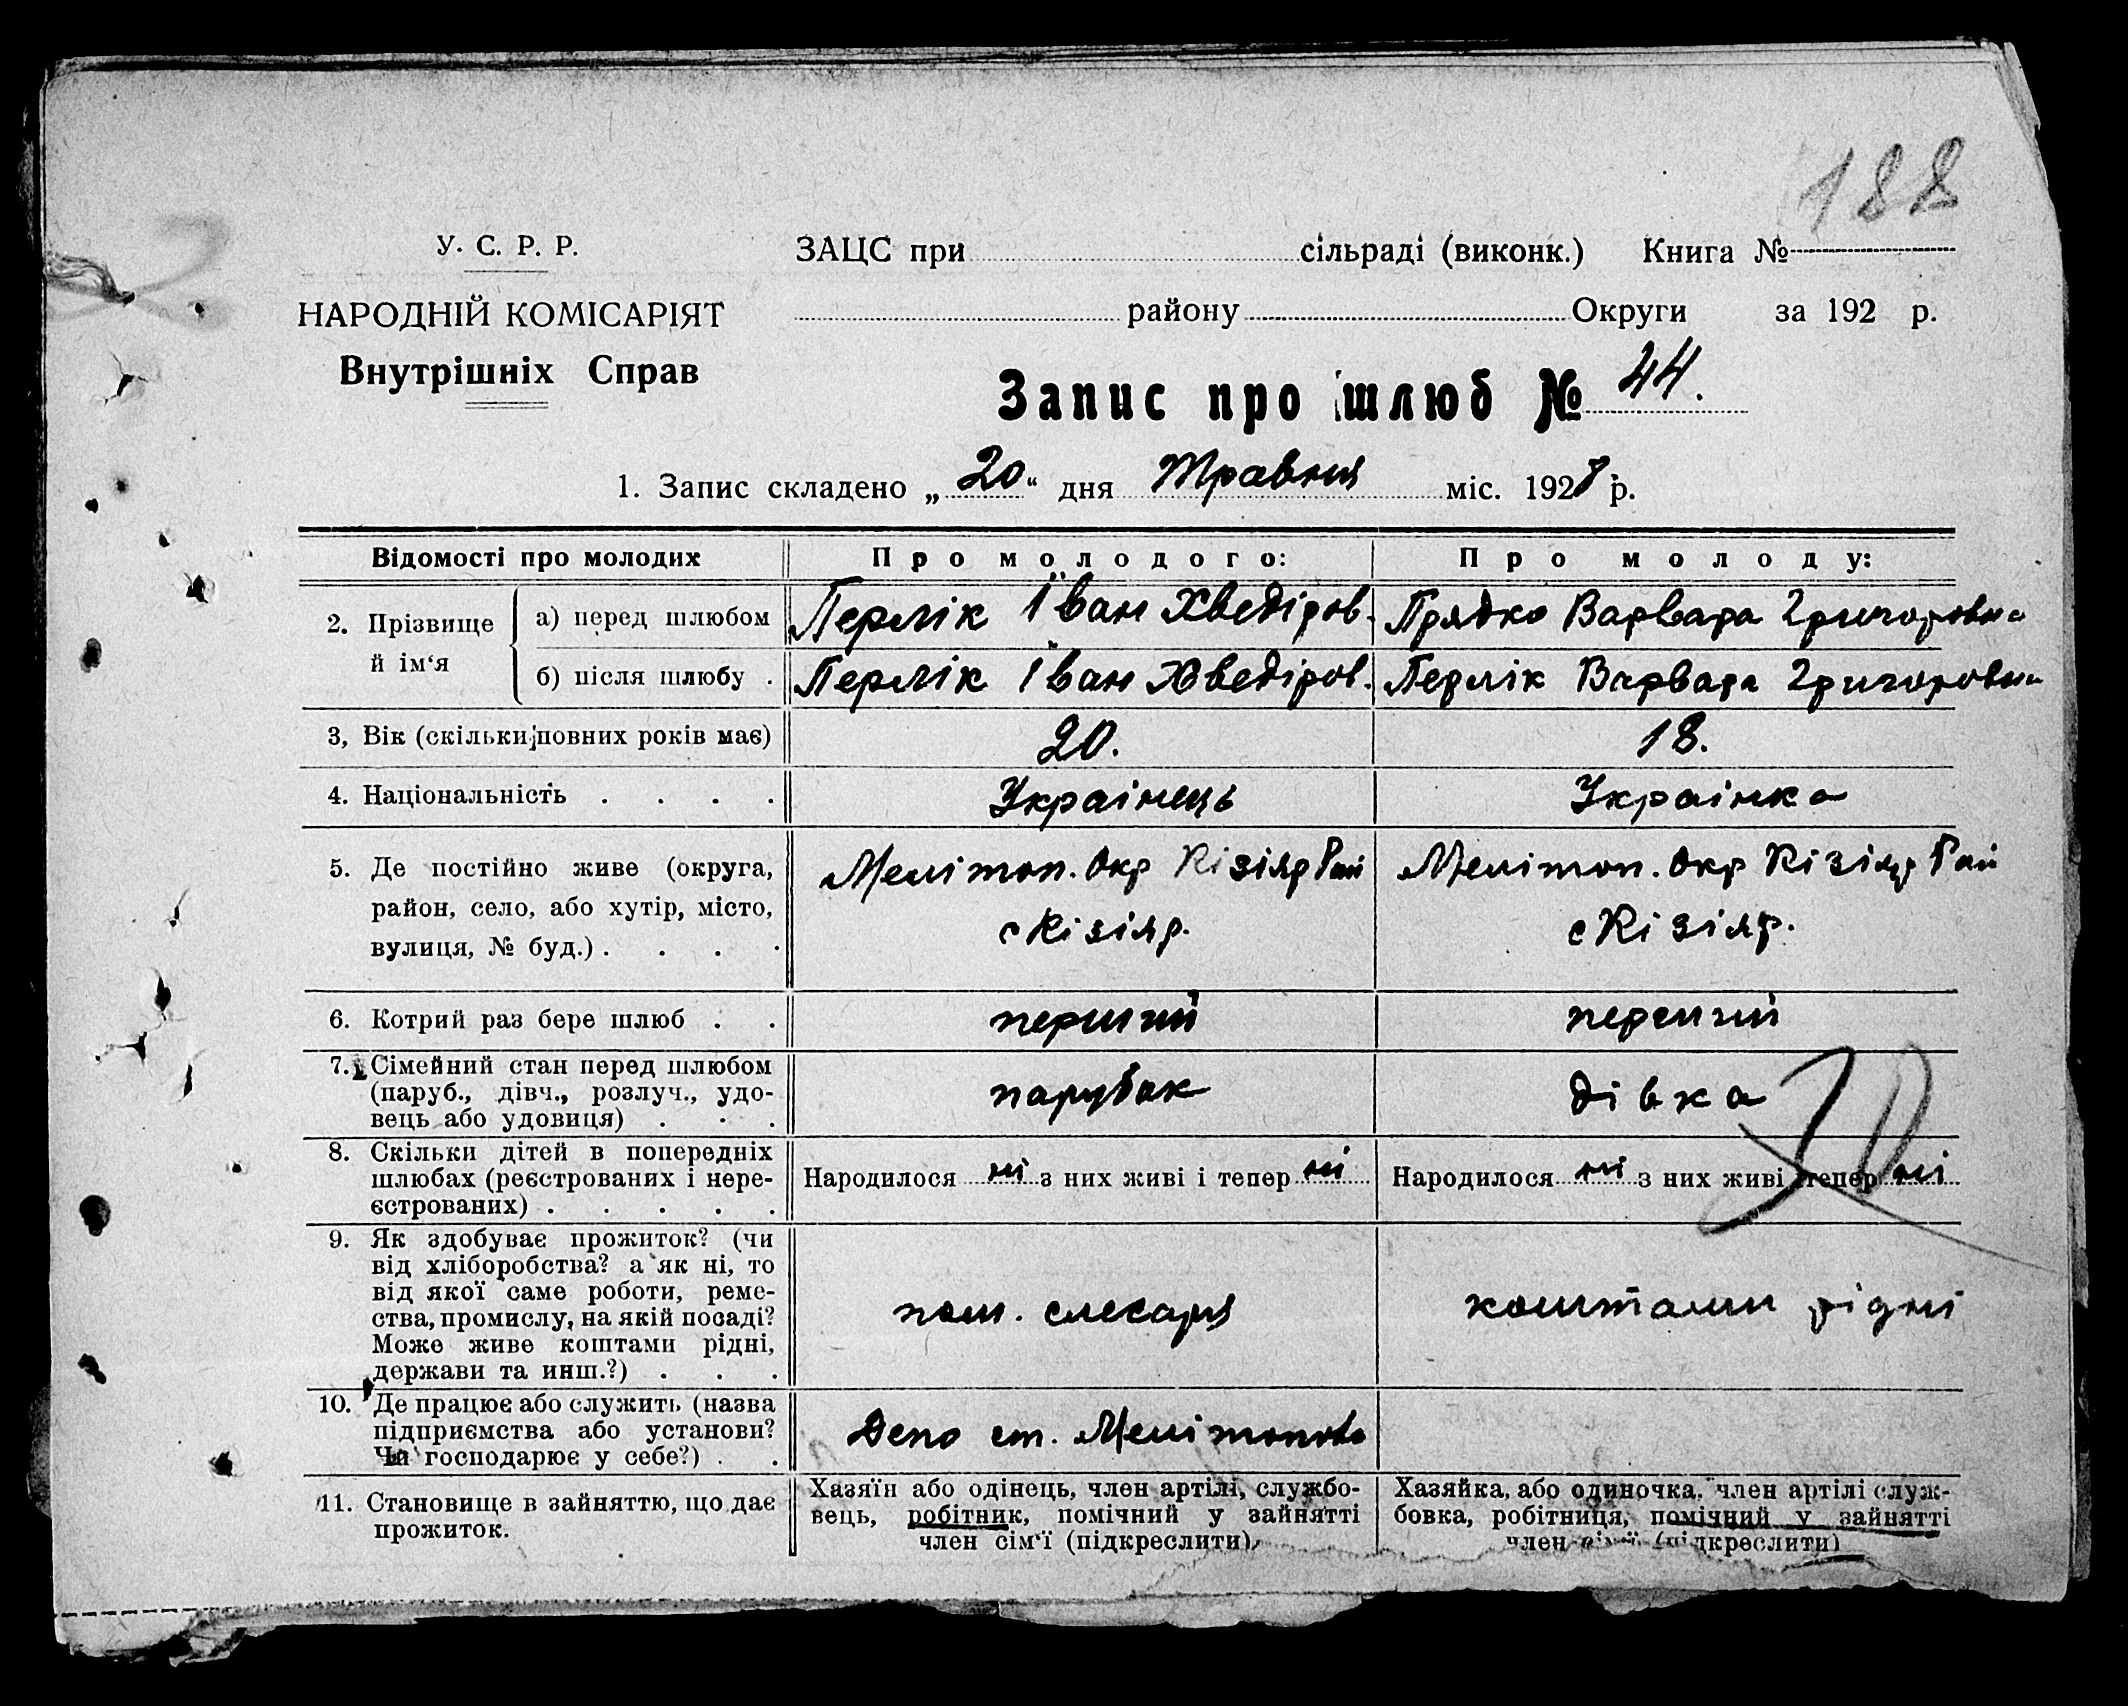 188
У. С. Р. Р.
НАРОДНІЙ КОМІСАРІЯТ
Внутрішніх Справ
ЗАЦС при сільраді (виконк.) Книга №
району Округи за 192 р.
Запис про шлюб № 44.
1. Запис складено „20“ дня Травня міс. 1928 р.
Відомості про молодих
Про молодого:
Про молоду:
2. Прізвище й ім‘я
а) перед шлюбом
Перлік Іван Хведіров.
Прядко Варвара Григоровна
б) після шлюбу .
Перлік Іван Хведіров.
Перлік Варвара Григоровна
3, Вік (скільки повних років має)
20.
18.
4. Національність . . . .
Українець
Українка
5. Де постійно живе (округа,
район, село, або хутір, місто,
вулиця, № буд.) . . . .
Мелітоп. Окр Кізіяр Рай
с Кізіяр.
Мелітоп. Окр Кізіяр Рай
с Кізіяр.
6. Котрий раз бере шлюб . .
перший
перший
7. Сімейний стан перед шлюбом
(паруб., дівч., розлуч., удо-
вець або удовиця) . . .
парубок
дівка
8. Скільки дітей в попередніх
шлюбах (реєстрованих і нере-
єстрованих) . . . . .
Народилося ні з них живі і тепер ні
Народилося ні з них живі і тепер ні
9. Як здобуває прожиток? (чи
від хліборобства? а як ні, то
від якої саме роботи, реме-
ства, промислу, на якій посаді?
Може живе коштами рідні,
держави та инш.?) . . .
пом. слесаря
коштами рідні
10. Де працює або служить (назва
підприємства або установи?
Чи господарює у себе?) . .
Депо ст. Мелітополь
11. Становище в зайняттю, що дає
прожиток.
Хазяїн або одінець, член артілі, службо-
вець, робітник, помічний у зайнятті
член сім‘ї (підкреслити),
Хазяйка, або одиночка, член артілі служ-
бовка, робітниця, помічний у зайнятті
член сім‘ї (підкреслити)